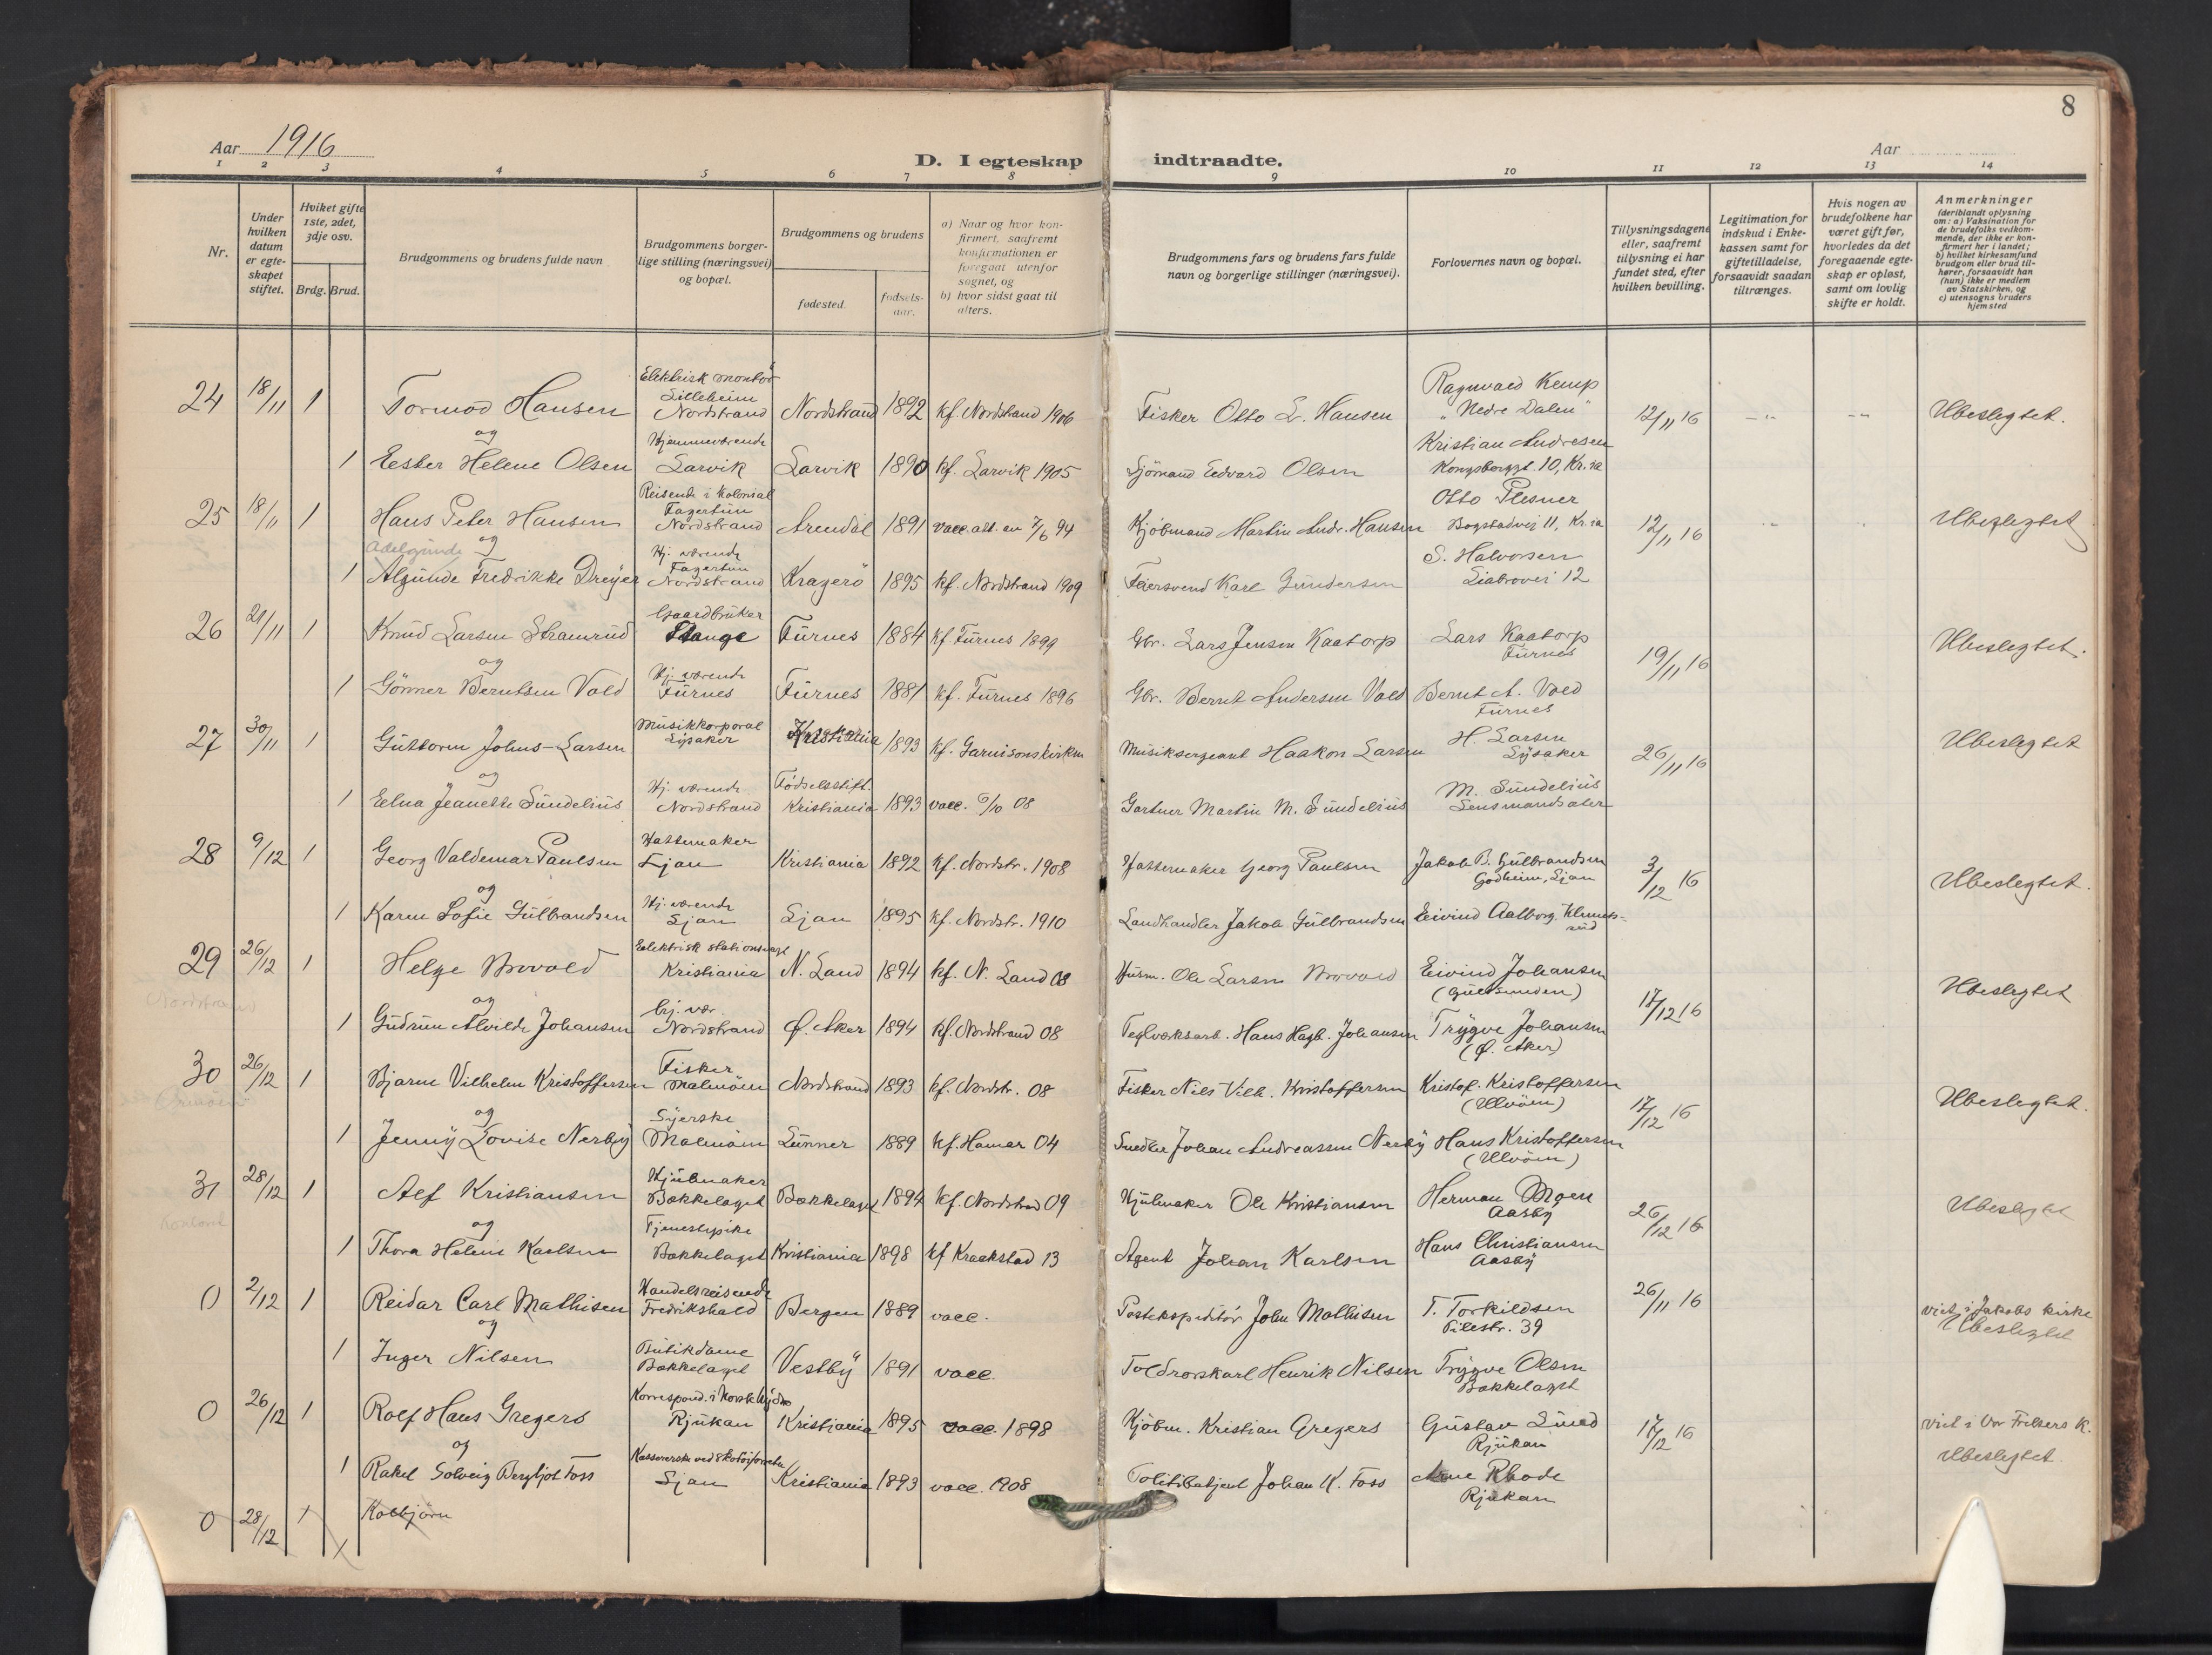 8
Aar 1916
D. I egteskap indtraadte.
Aar
1 2 3 4 5 6 7 8 9 10 11 12 13 14
Nr.
Under hvilken datum er egteskapet stiftet.
Hviket gifte 1ste, 2det, 3dje osv.
Brdg. Brud.
Brudgommens og brudens fulde navn
Brudgommens borgerlige stilling (næringsvei) og bopæl.
Brudgommens og brudens
fødested.
fødselsaar.
a) Naar og hvor konfirmert, saafremt konfirmationen er foregaat utenfor sognet, og
b) hvor sidst gaat til alters.
Brudgommens fars og brudens fars fulde navn og borgerlige stillinger (næringsvei).
Forlovernes navn og bopæl.
Tillysningsdagene eller, saafremt tillysning ei har fundet sted, efter hvilken bevilling.
Legitimation for indskud i Enkekassen samt for giftetilladelse, forsaavidt saadan tiltrænges.
Hvis nogen av brudefolkene har været gift før, hvorledes da det foregaaende egteskap er opløst, samt om lovlig skifte er holdt.
Anmerkninger (deriblandt oplysning om: a) Vaksination for de brudefolks vedkommende, der ikke er konfirmert her i landet; b) hvilket kirkesamfund brudgom eller brud tilhører, forsaavidt han (hun) ikke er medlem av Statskirken, og c) utensogns bruders hjemsted
24 18/11 1 Tormod Hansen Elektrisk montør Lilleheim Nordstrand Nordstrand 1892 kf. Nordstrand 1906 Fisker Otto L. Hansen Ragnvald Kemp "Nedre Dalen" 12/11 16 -"- -"- Ubeslegtet.
og
1 Ester Helene Olsen Hjemmeværende Larvik Larvik 1890 kf. Larvik 1905 Sjömand Edvard Olsen Kristian Andresen Kongsberggt. 10, Kr.ia
25 18/11 1 Hans Peter Hansen Reisende i kolonial Fagertun Nordstrand Arendal 1891 vacc. att. av 7/6 94 Kjöbmand Martin Andr. Hansen Otto Plesner Bogstadvei 11, Kr.ia 12/11 16 Ubeslegtet
Adelgunde og
1 Algunde Fredrikke Dreyer Hj. værende Fagertun Nordstrand Kragerö 1895 kf. Nordstrand 1909 Feiersvend Karl Gundersen S. Halvorsen Liabrovei 12
26 21/11 1 Knud Larsen Stramrud Gaardbruker Stange Furnes 1884 kf. Furnes 1899 Gbr. Lars Jensen Kaatorp Lars Kaatorp Furnes 19/11 16 Ubeslegtet.
og
1 Gönner Berntsen Vold Hj. værende Furnes Furnes 1881 kf. Furnes 1896 Gbr. Bernt Andersen Vold Bernt A. Vold Furnes
27 30/11 1 Guttorm Johns-Larsen Musikkorporal Lysaker Kristiania 1893 kf. Garnisonskirken Musiksergeant Haakon Larsen H. Larsen Lysaker 26/11 16 Ubeslegtet
og
1 Elna Jeanette Sundelius Hj. værende Nordstrand Fødselsstift. Kristiania 1893 vacc. 6/10 08 Gartner Martin M. Sundelius M. Sundelius
28 9/12 1 Georg Valdemar Paulsen Hattemaker Ljan Kristiania 1892 kf. Nordstr. 1908 Hattemaker Georg Paulsen Jakob B. Gulbrandsen Godheim, Ljan 3/12 16 Ubeslegtet.
og
1 Karen Sofie Gulbrandsen Hj. værende Ljan Ljan 1895 kf. Nordstr. 1910 Landhandler Jakob Gulbrandsen Eivind Aalborg, Klemetsrud
29 26/12 1 Helge Movold Elektrisk stationsvagt Kristiania N. Land 1894 kf. N. Land 08 Husm. Ole Larsen Movold Eivind Johansen (Gullsmeden) 17/12 16 Ubeslegtet
Nordstrand og
1 Gudrun Alvilde Johansen Hj. vær. Nordstrand Ø. Aker 1894 kf. Nordstrand 08 Teglverksarb. Hans Hagb. Johansen Trygve Johansen (Ø. Aker)
30 26/12 1 Bjarne Vilhelm Kristoffersen Fisker Malmöen Nordstrand 1893 kf. Nordstr. 08 Fisker Nils Vilh. Kristoffersen Kristof. Kristoffersen (Ulvöen) 17/12 16 Ubeslegtet.
og
1 Jenny Lovise Nerby Syerske Malmöen Lunner 1889 kf. Hamar 04 Snedker Johan Andreassen Nerby Hans Kristoffersen (Ulvöen)
31 28/12 1 Alf Kristiansen Hjulmaker Bækkelaget Bækkelaget 1894 kf. Nordstrand 09 Hjulmaker Ole Kristiansen Herman Moen Aasby 26/12 16 Ubeslegtet
og
1 Thora Helene Karlsen Tjenestepike Bækkelaget Kristiania 1898 kf Kraakstad 13 Agent Johan Karlsen Hans Christiansen Aasby
0 2/12 1 Reidar Carl Mathisen Handelsreisende Fredrikshald Bergen 1889 vacc. Postekspeditör John Mathisen T. Torkildsen Pilestr. 39 26/11 16 viet i Jakobs kirke Ubeslegtet
og
1 Inger Nilsen Butikdame Bækkelaget Vestby 1891 vacc. Toldrorskarl Henrik Nilsen Trygve Olsen Bækkelaget
0 26/12 1 Rolf Hans Gregers Korrespond. i Norsk Hydro Rjukan Kristiania 1895 vacc. 1898 Kjöbm. Kristian Gregers Gustav Lund Rjukan 17/12 16 viet i Vor Frelsers K. Ubeslegtet.
og
1 Rakel Solveig Bergljot Foss Kassererske ved Ljan Kristiania 1893 vacc. 1908 Politibetjent Johan K. Foss Arne Rhode Rjukan
0 28/12 1 Kolbjörn
1